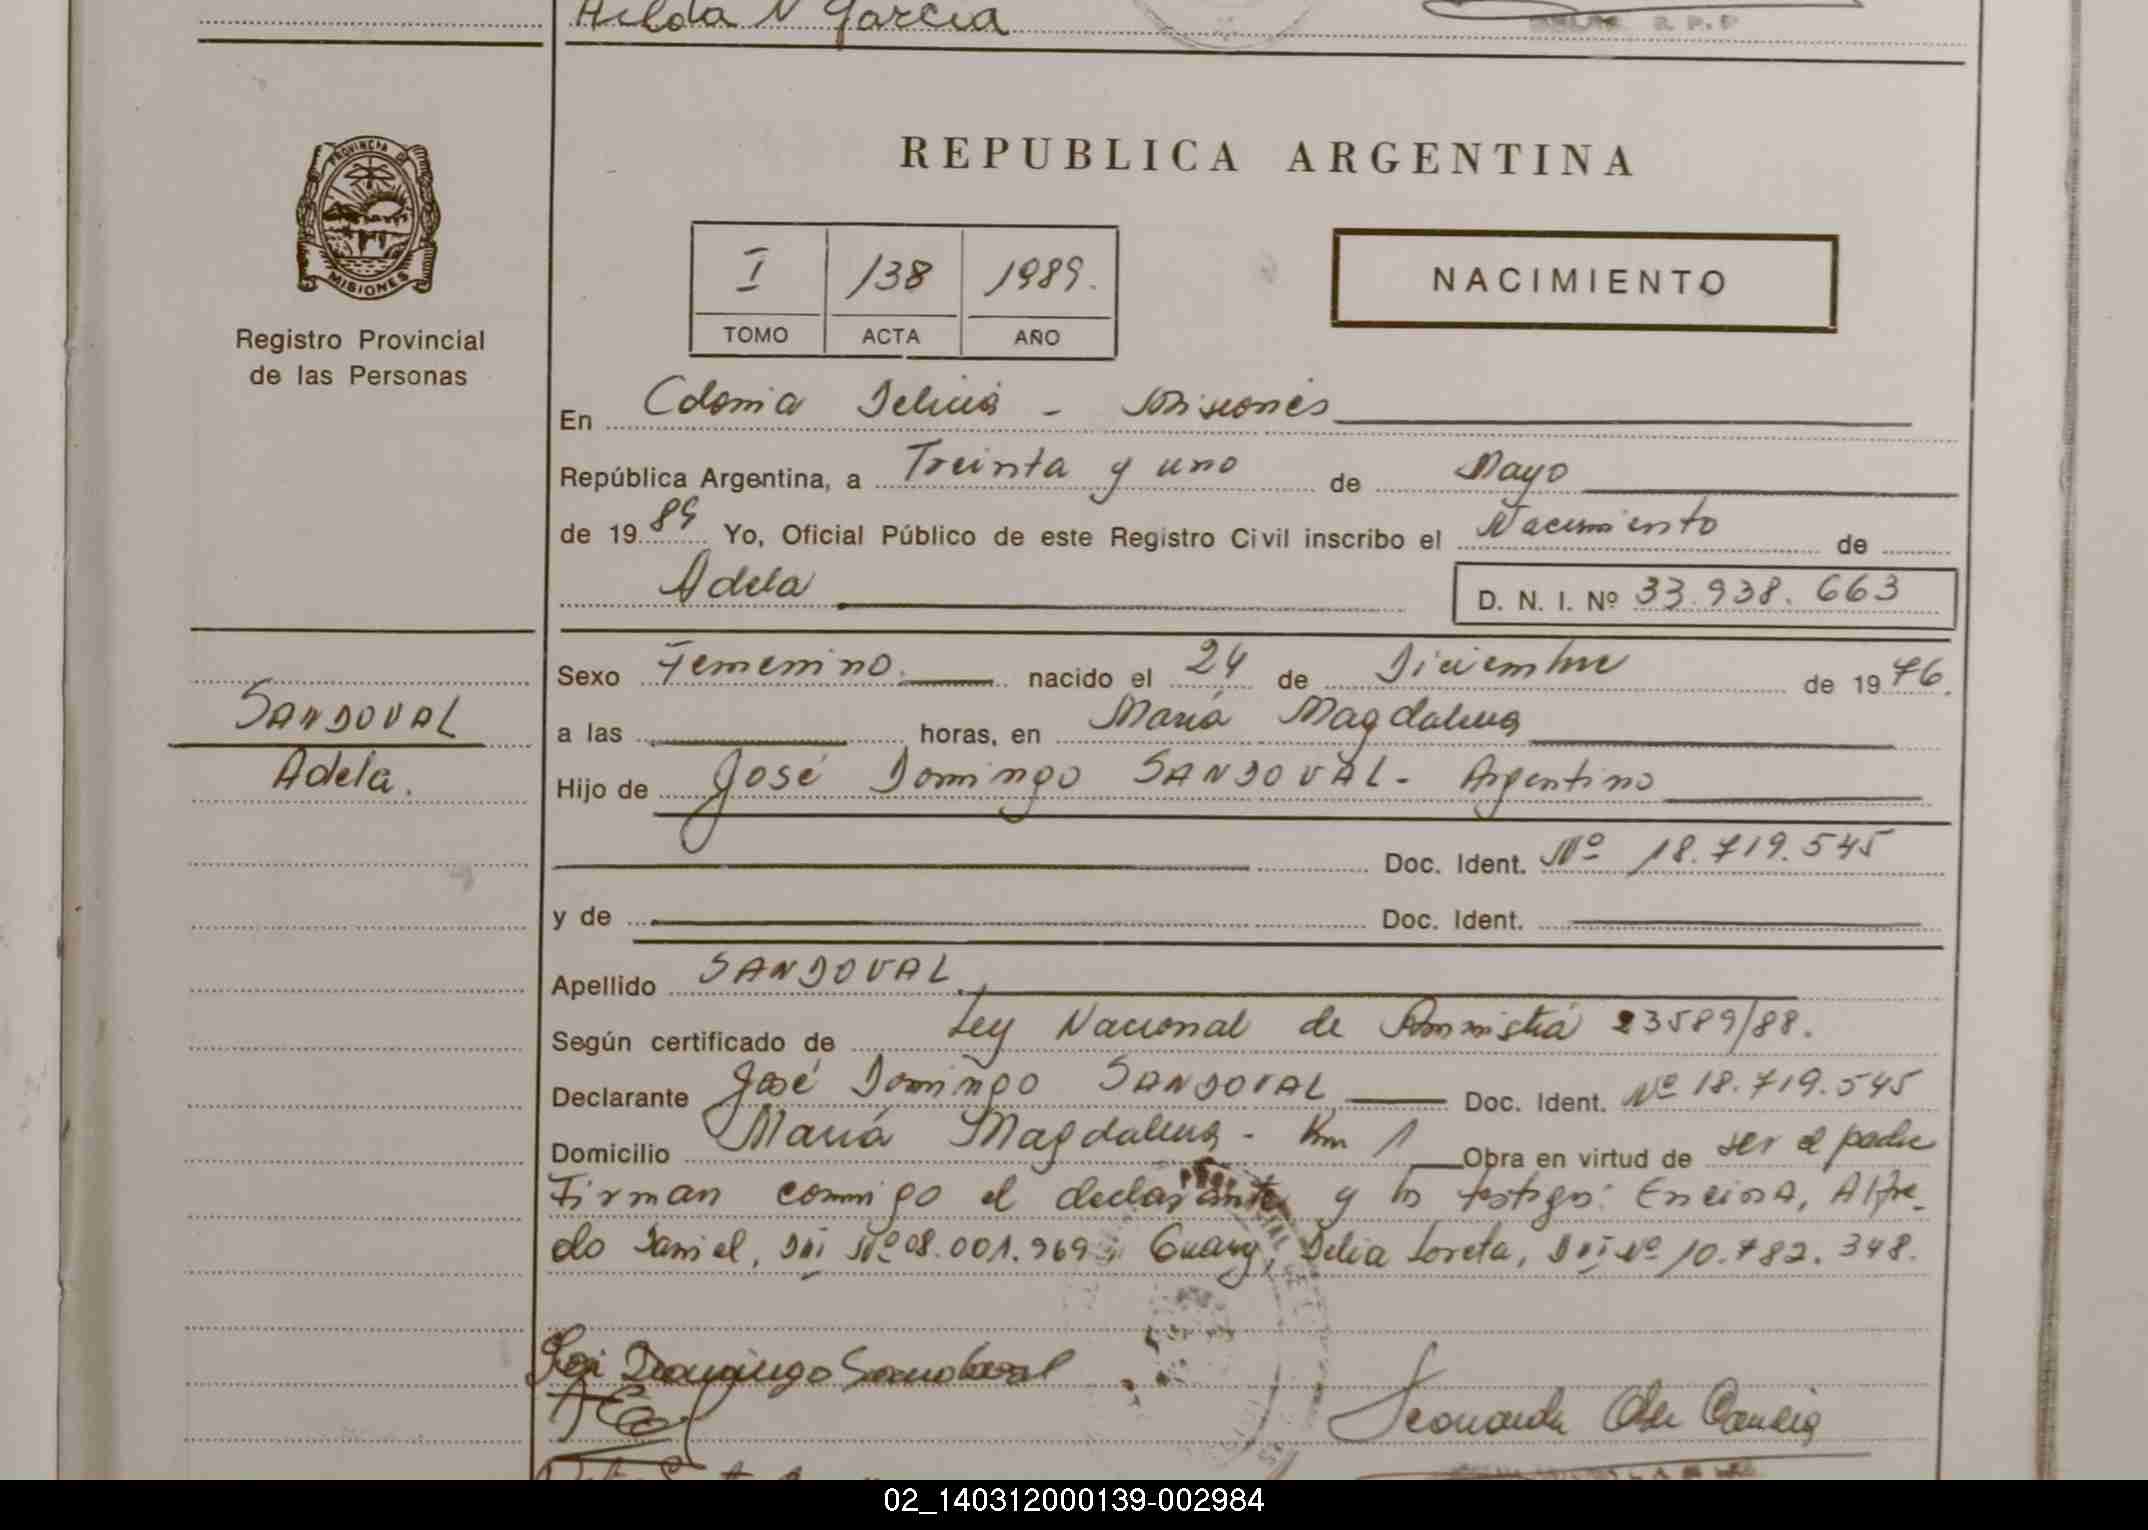 Hilda N Garcia
R. P. P
PROVINCIA DE
MISIONES
Registro Provincial
de las Personas
REPUBLICA ARGENTINA
I 138 1989.
TOMO ACTA AÑO
NACIMIENTO
En Colonia Delicia - Misiones
República Argentina, a Treinta y uno de Mayo
de 1989 Yo, Oficial Público de este Registro Civil inscribo el Nacimiento de
Adela D. N. I. Nº 33.938.663
Sexo Femenino. nacido el 24 de Diciembre de 1976.
SANDOVAL
Adela.
a las horas, en María Magdalena
Hijo de José Domingo SANDOVAL - Argentino
Doc. Ident. Nº 18.719.545
y de Doc. Ident.
Apellido SANDOVAL
Según certificado de Ley Nacional de Amnistía 23589/88.
Declarante José Domingo SANDOVAL Doc. Ident. Nº 18.719.545
Domicilio María Magdalena - Km 1 Obra en virtud de ser el padre
Firman conmigo el declarante y los testigos: Encina, Alfre-
do Daniel, DNI Nº 08.001.969, Delia Loreta, DNI Nº 10.782.348.
José Domingo Sandoval
02_140312000139-002984